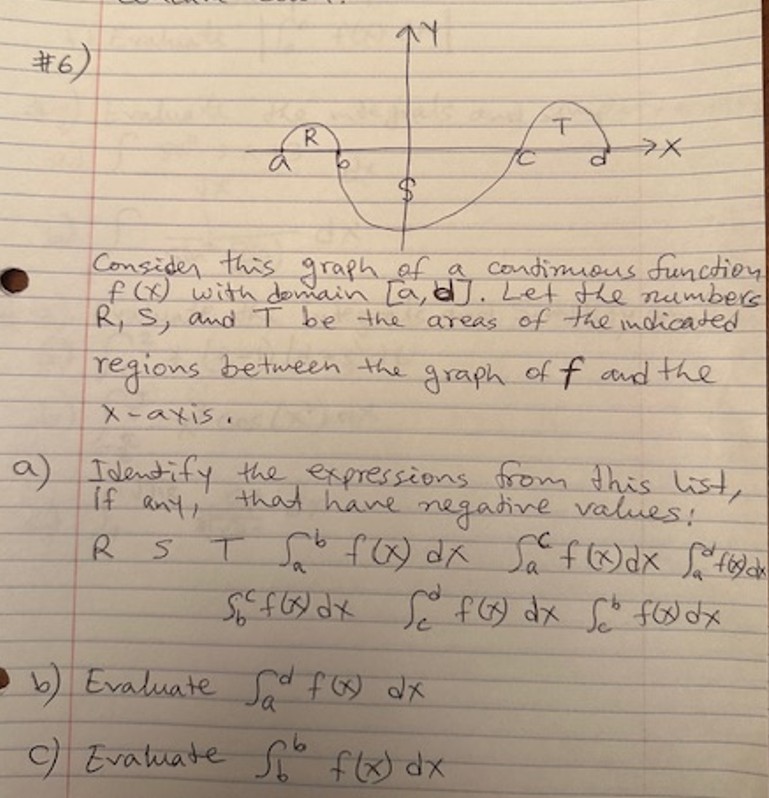 #6)
Y
R T
a b c d X
S
Consider this graph of a continuous function
f(x) with domain [a,d]. Let the numbers
R, S, and T be the areas of the indicated
regions between the graph of f and the
x-axis.
a) Identify the expressions from this list,
if any, that have negative values:
R S T ∫ₐᵇ f(x) dx ∫ₐᶜ f(x)dx ∫ₐᵈ f(x)dx
∫_b^c f(x)dx ∫_c^d f(x) dx ∫_c^b f(x)dx
b) Evaluate ∫ₐᵈ f(x) dx
c) Evaluate ∫_b^b f(x) dx